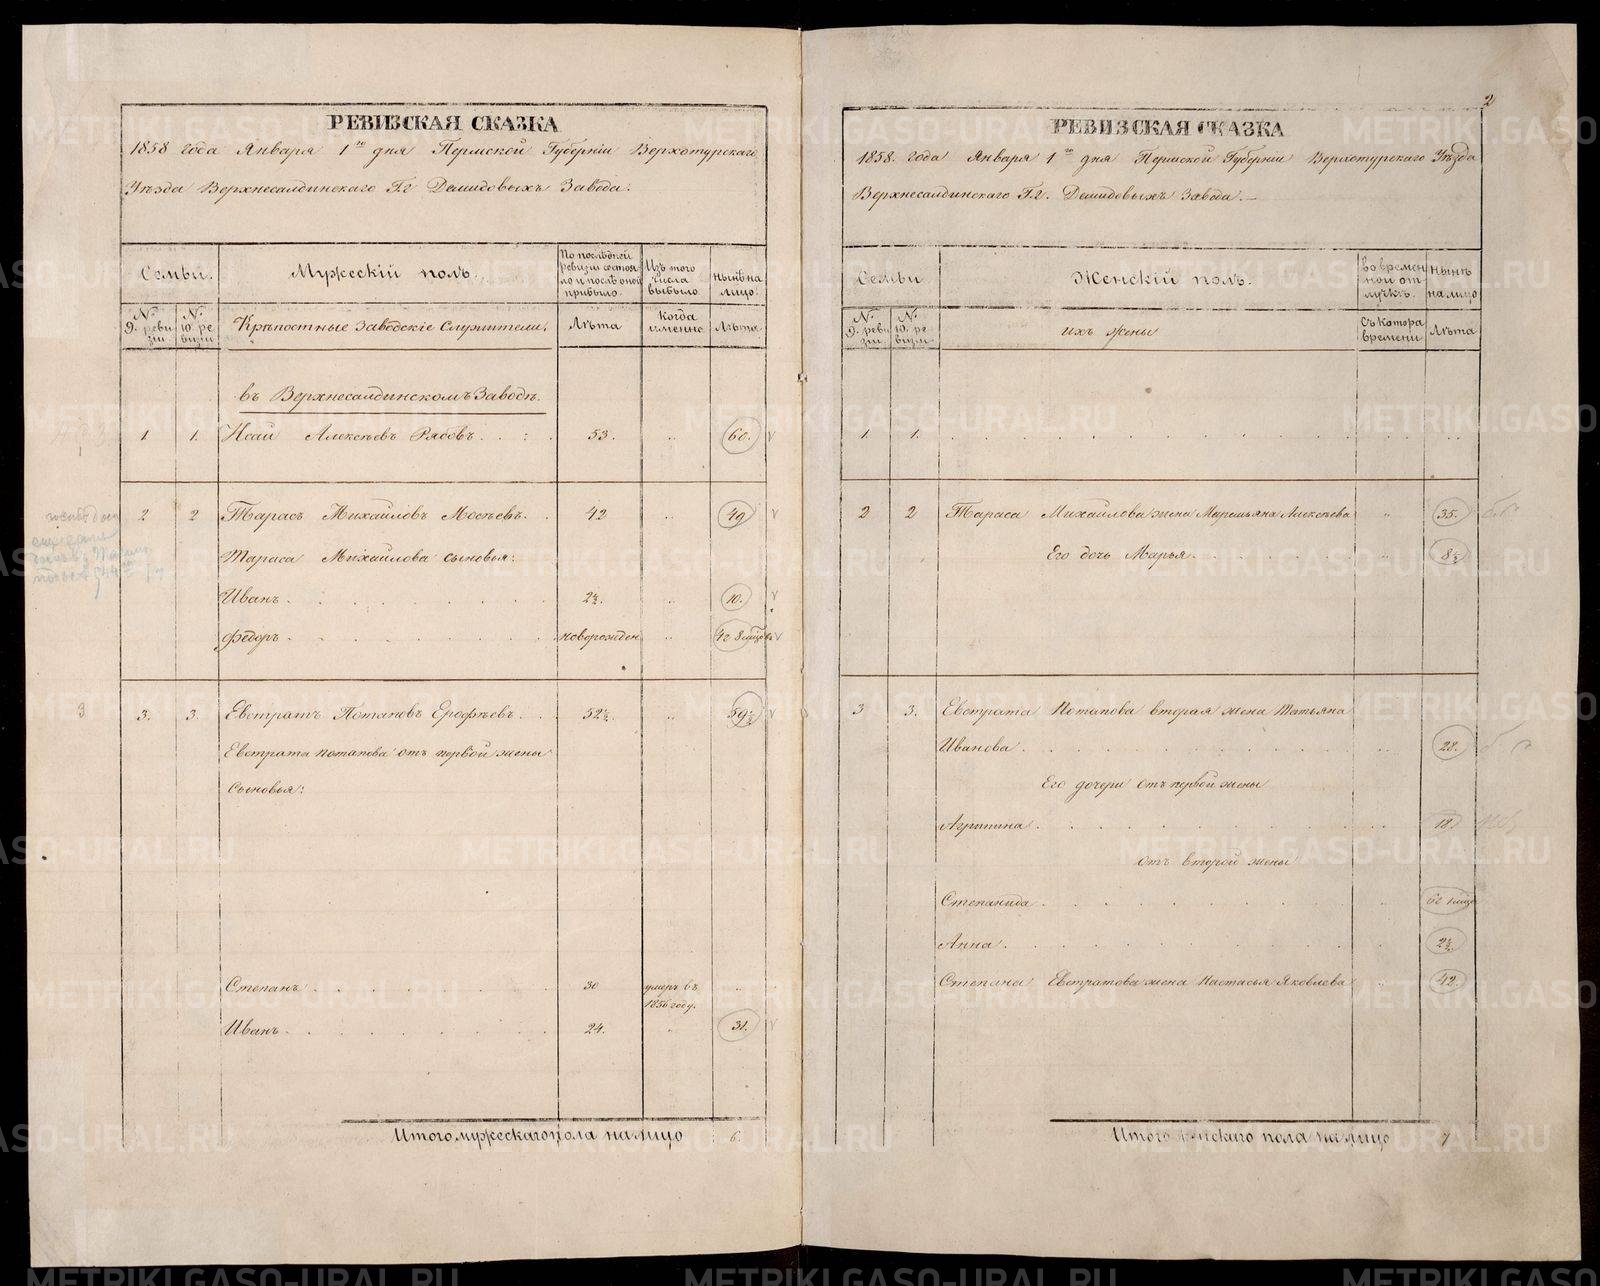 РЕВИЗСКАЯ СКАЗКА
1858 года Января 1го дня Пермской Губерніи Верхотурскаго
Уѣзда Верхнесалдинскаго Гг Демидовыхъ Завода.
Семьи.
Мужескій полъ.
По послѣдной ревизіи состояло и послѣ оной прибыло.
Изъ того числа выбыло
нынѣ на лицо.
№ 9. ревизіи
№ 10. ревизіи
Крѣпостные Заводскіе Служители.
Лѣта
Когда именно
Лѣта
въ Верхнесалдинскомъ Заводѣ.
1 1. Исай Алексѣевъ Рябовъ. 53. 60.
2 2 Тарасъ Михайловъ Мосѣевъ. 42 49
Тараса Михайлова сыновья:
Иванъ. 2½. 10.
Федоръ новорожден 4г 8 мѣсц
3
3. 3. Евстратъ Потаповъ Ерофѣевъ. 52½. 59½
Евстрата Потапова отъ первой жены
Сыновья:
Степанъ 30 умеръ въ 1856 году.
Иванъ. 24. 31.
Итого мужескаго пола на лицо 6.
2
РЕВИЗСКАЯ СКАЗКА
1858. года Января 1го дня Пермской Губерніи Верхотурскаго Уѣзда
Верхнесалдинскаго Гг. Демидовыхъ Завода.
Семьи
Женскій полъ.
во временной отлучкѣ.
нынѣ на лицо
№ 9. ревизіи
№ 10. ревизіи
ихъ жены
Съ котора времени
Лѣта
1. 1.
2 2 Тараса Михайлова жена Маремьяна Алексѣева 35.
Его дочь Марья. 8½
3 3. Евстрата Потапова вторая жена Татьяна
Иванова. 28.
Его дочери отъ первой жены
Агрипина. 18
отъ второй жены
Степанида 6г 1 мѣсц
Анна. 2½
Степана Евстратова жена Настасья Яковлева 42.
Итого женскаго пола на лицо 7
METRIKI.GASO-URAL.RU